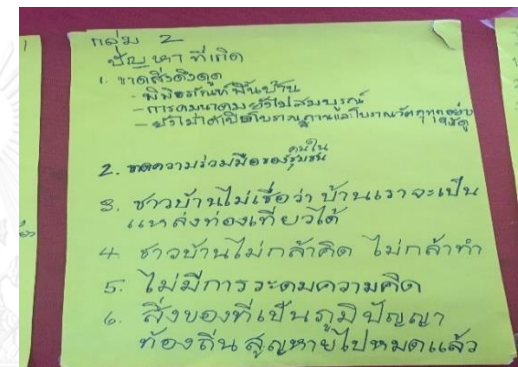 กลุ่ม 2
ปัญหาที่เกิด
1. ขาดสิ่งดึงดูด
- พิพิธภัณฑ์พื้นบ้าน
- การคมนาคมยังไม่สมบูรณ์
- ยังไม่ได้เปิดโบราณสถานและโบราณวัตถุทุกอย่าง
2. ขาดความร่วมมือของคนในชุมชน
3. ชาวบ้านไม่เชื่อว่า บ้านเราจะเป็น
แหล่งท่องเที่ยวได้
4. ชาวบ้านไม่กล้าคิด ไม่กล้าทำ
5. ไม่มีการระดมความคิด
6. สิ่งของที่เป็นภูมิปัญญา
ท้องถิ่นสูญหายไปหมดแล้ว